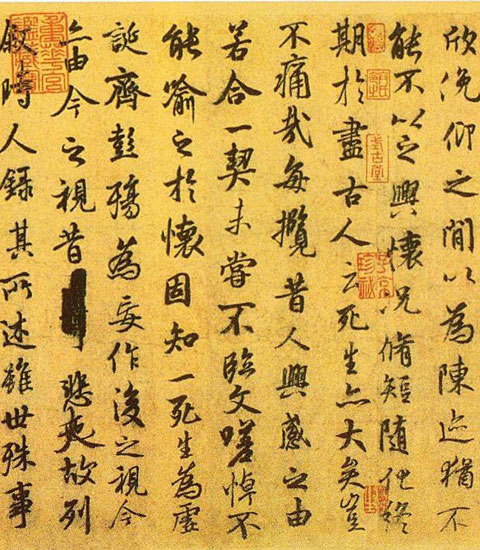 欣俛仰之閒以為陳迹猶不
能不以之興懷況脩短隨化終
期於盡古人云死生亦大矣豈
不痛哉每攬昔人興感之由
若合一契未嘗不臨文嗟悼不
能喻之於懷固知一死生為虛
誕齊彭殤為妄作後之視今
亦由今之視昔悲夫故列
敘時人錄其所述雖世殊事